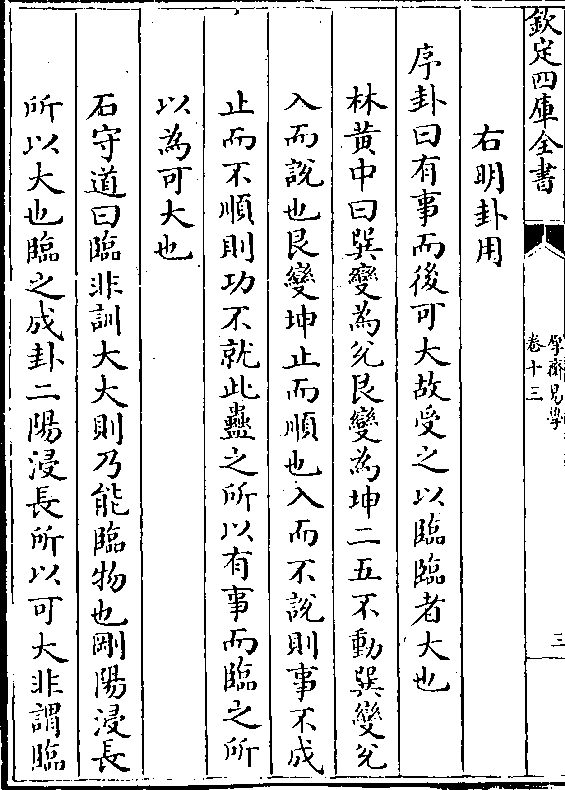 欽定四庫全書
卷十三
三
右明卦用
序卦曰有事而後可大故受之以臨臨者大也
林黃中曰巽變為兊艮變為坤二五不動巽變兊
入而說也艮變坤止而順也入而不說則事不成
止而不順則功不就此蠱之所以有事而臨之所
以為可大也
石守道曰臨非訓大大則乃能臨物也剛陽浸長
所以大也臨之成卦二陽浸長所以可大非謂臨